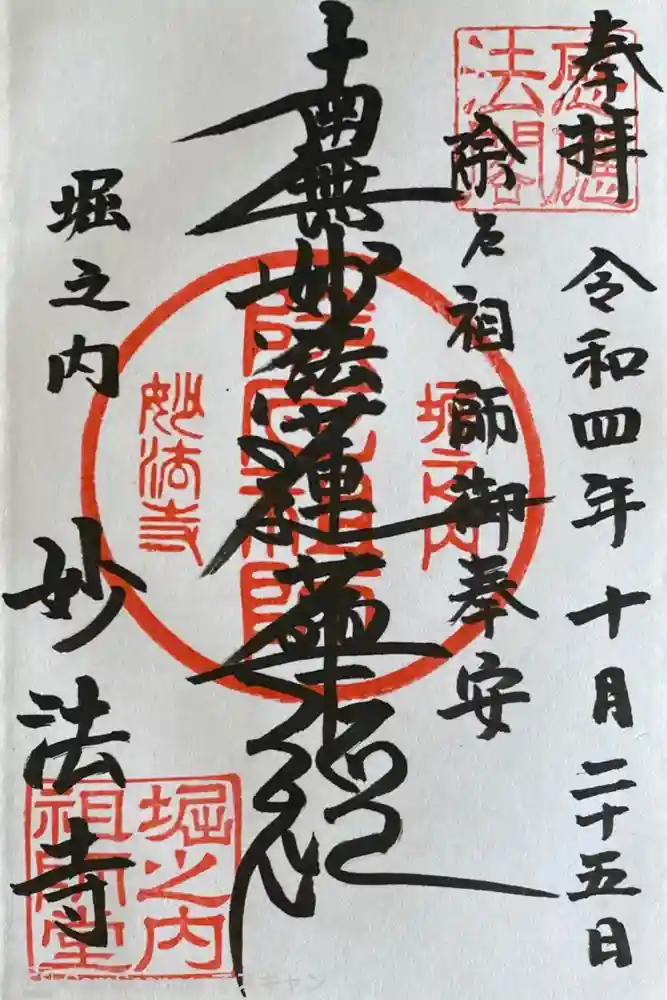 奉拝
令和四年十月二十五日
除厄祖師御奉安
南無妙法蓮華経
堀之内
妙法寺
堀之内
除厄祖師
妙法寺
堀之内
祖師堂